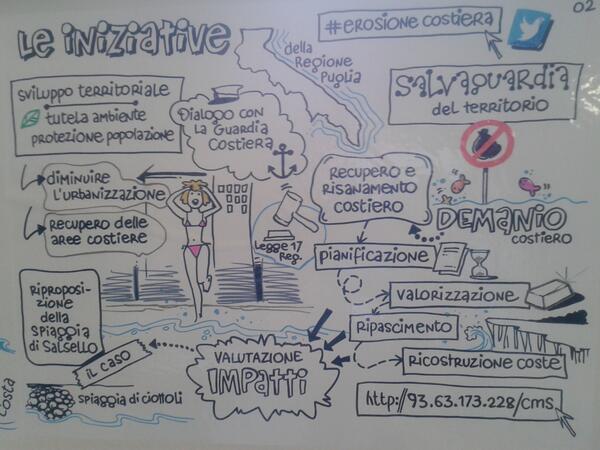 02
Le iniziative
della
Regione
Puglia
#erosione costiera
sviluppo territoriale
tutela ambiente
protezione popolazione
Dialogo con
la Guardia
Costiera
Salvaguardia
del territorio
diminuire
l'urbanizzazione
recupero delle
aree costiere
Legge 17
Reg.
Recupero e
risanamento
costiero
Demanio
costiero
pianificazione
valorizzazione
ripascimento
ricostruzione coste
riproposi-
zione
della
spiaggia
di Salsello
il caso
spiaggia di ciottoli
Costa
valutazione
impatti
http://93.63.173.228/cms